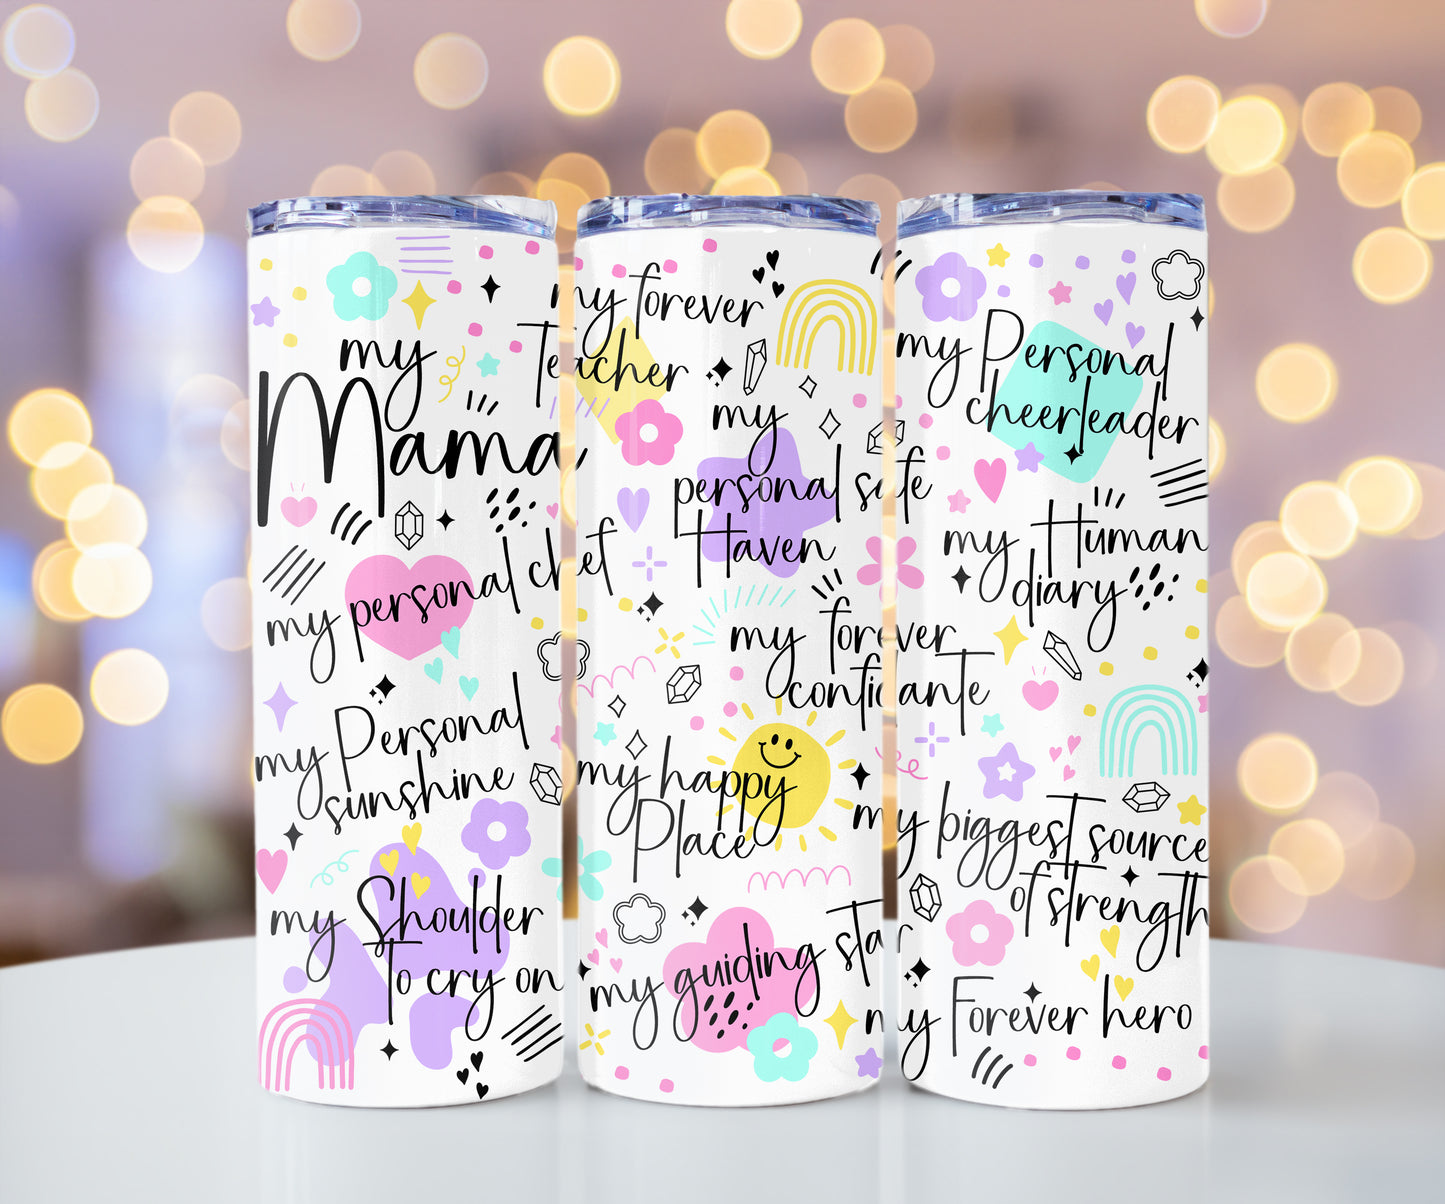 my
Mama
my personal chef
my Personal
sunshine
my Shoulder
To cry on
my forever
Teacher
my
personal safe
Haven
my forever
confidante
my happy
Place
my guiding star
my Personal
cheerleader
my Human
diary
my biggest source
of strength
my Forever hero